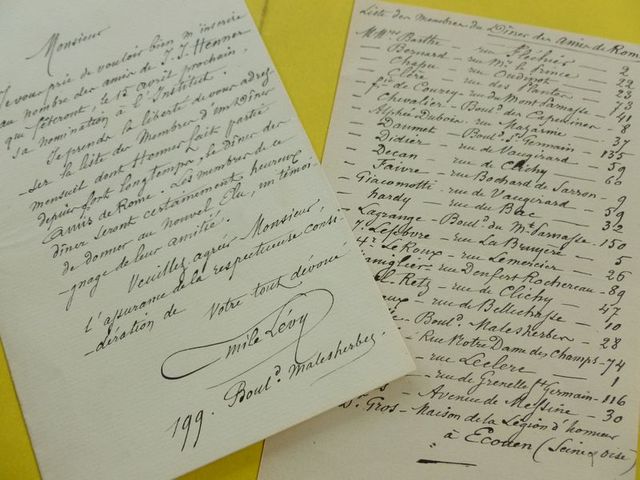 Monsieur
Je vous prie de vouloir bien m'inscrire
au nombre des amis de J. J. Henner
qui fêteront, le 15 avril prochain,
sa nomination à l'Institut.
Je prends la liberté de vous adres-
-ser la liste des Membres d'un Dîner
mensuel dont Henner fait partie
depuis fort longtemps, le Dîner des
Amis de Rome. Les membres de ce
dîner seront certainement heureux
de donner au nouvel Elu, un témoi-
-gnage de leur amitié.
Veuillez agréer Monsieur,
l'assurance de la respectueuse consi-
-dération de
Votre tout dévoué
Emile Lévy
199. Boulᵈ. Malesherbes
Liste des Membres du Dîner des amis de Rome
MMrs Barthe — rue 2
Bernard — rue Mr le Prince — 22
Chapu — rue Oudinot — 23
Clère — rue des Plantes — 73
de Courcy — rue du Mont Parnasse — 41
Chevalier — Boulᵈ des Capucines — 8
Alphée Dubois — rue Mazarine — 37
Daumet — Boulᵈ St Germain
Didier — rue de Vaugirard — 135
Ducan — rue de Clichy — 59
Faivre — rue Bochard de Sarron — 9
Giacomotti — rue de Vaugirard — 59
hardy — rue du Bac — 32
Lagrange — Boulᵈ du Mt Parnasse — 150
J. Lefebvre — rue La Bruyère — 5
Le Roux — rue Lemercier — 26
rue Denfert Rochereau — 89
Retz — rue de Clichy — 47
rue de Bellechasse — 10
Boulᵈ. Malesherbes — 28
Rue Notre Dame des Champs — 74
rue Leclerc — 1
rue de Grenelle St Germain — 116
Avenue de Messine — 30
Dr Gros — Maison de la Légion d'honneur
à Ecouen (Seine & Oise)